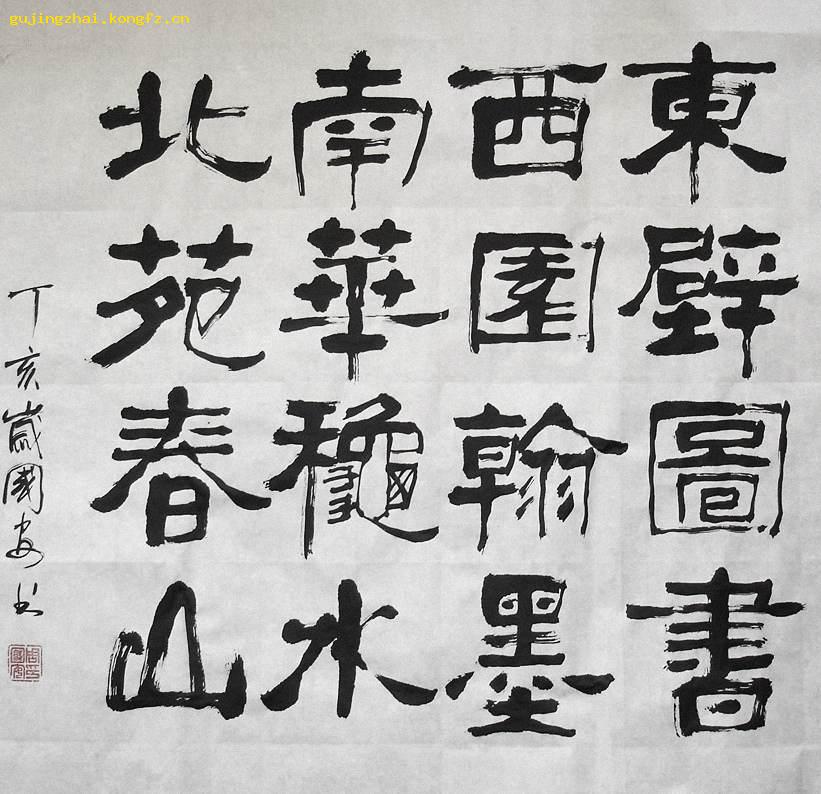 gujingzhai.kongfz.cn
東壁圖書
西園翰墨
南華龝水
北苑春山
丁亥歲國安书